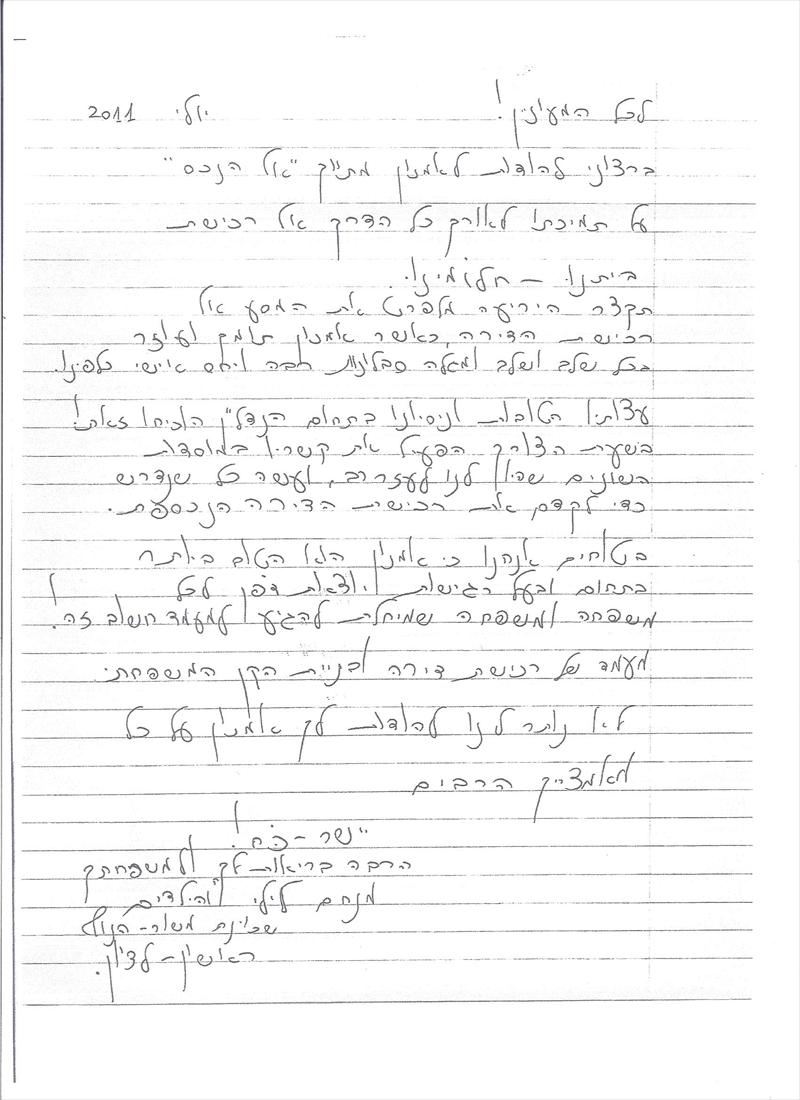 לכל המעונין! יולי 2011
ברצוני להודות לאמנון מתיווך "אל הנכס"
על תמיכתו לאורך כל הדרך אל רכישת
ביתנו - חלומינו.
תקצר היריעה מלפרט את המסע אל
רכישת הדירה, כאשר אמנון תומך ועוזר
בכל שלב ושלב ומגלה סבלנות רבה ויחס אישי כלפינו.
עצותיו הטובות וניסיונו בתחום הנדל"ן הוכיחו זאת!
בשעת הצורך הפעיל את קשריו במוסדות
השונים שהיו לנו לעזר רב, ועשה כל שנדרש
כדי לקדם את רכישת הדירה הנכספת.
בטוחים אנחנו כי אמנון הוא הטוב ביותר
בתחום ובעל רגישות יוצאת דופן לכל
משפחה ומשפחה שמיחלת להגיע למעמד חשוב זה.
מעמד של רכישת דירה ובניית הקן המשפחתי.
לא נותר לנו להודות לך אמנון על כל
מאמציך הרבים
יישר-כח!
הרבה בריאות לך ולמשפחתך
מנחם לילי והילדים
שכונת משור-הנוף
ראשון-לציון.